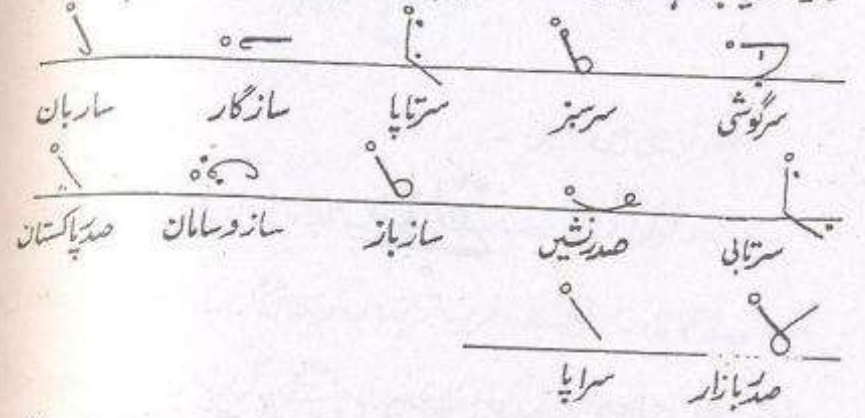 سرگوشی سرسبز سرتاپا سازگار ساربان
سرتابی صدر نشیں سازباز سازوسامان صدر پاکستان
صدر بازار سراپا